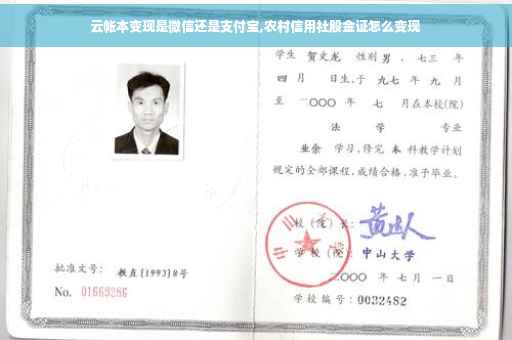 云帐本变现是微信还是支付宝,农村信用社股金证怎么变现
学生 贺文龙 性别 男 、七三 年
四 月 日生,于 九七 年 九 月
至 二〇〇〇 年 七 月在本校(院)
法 学 专业
业余 学习,修完 本 科教学计划
规定的全部课程,成绩合格,准予毕业。
校(院)长:
学 校(院): 中山大学
二〇〇〇 年 七 月 一 日
批准文号: 教直(1993)8号
No. 01669286
学校编号: 0032482